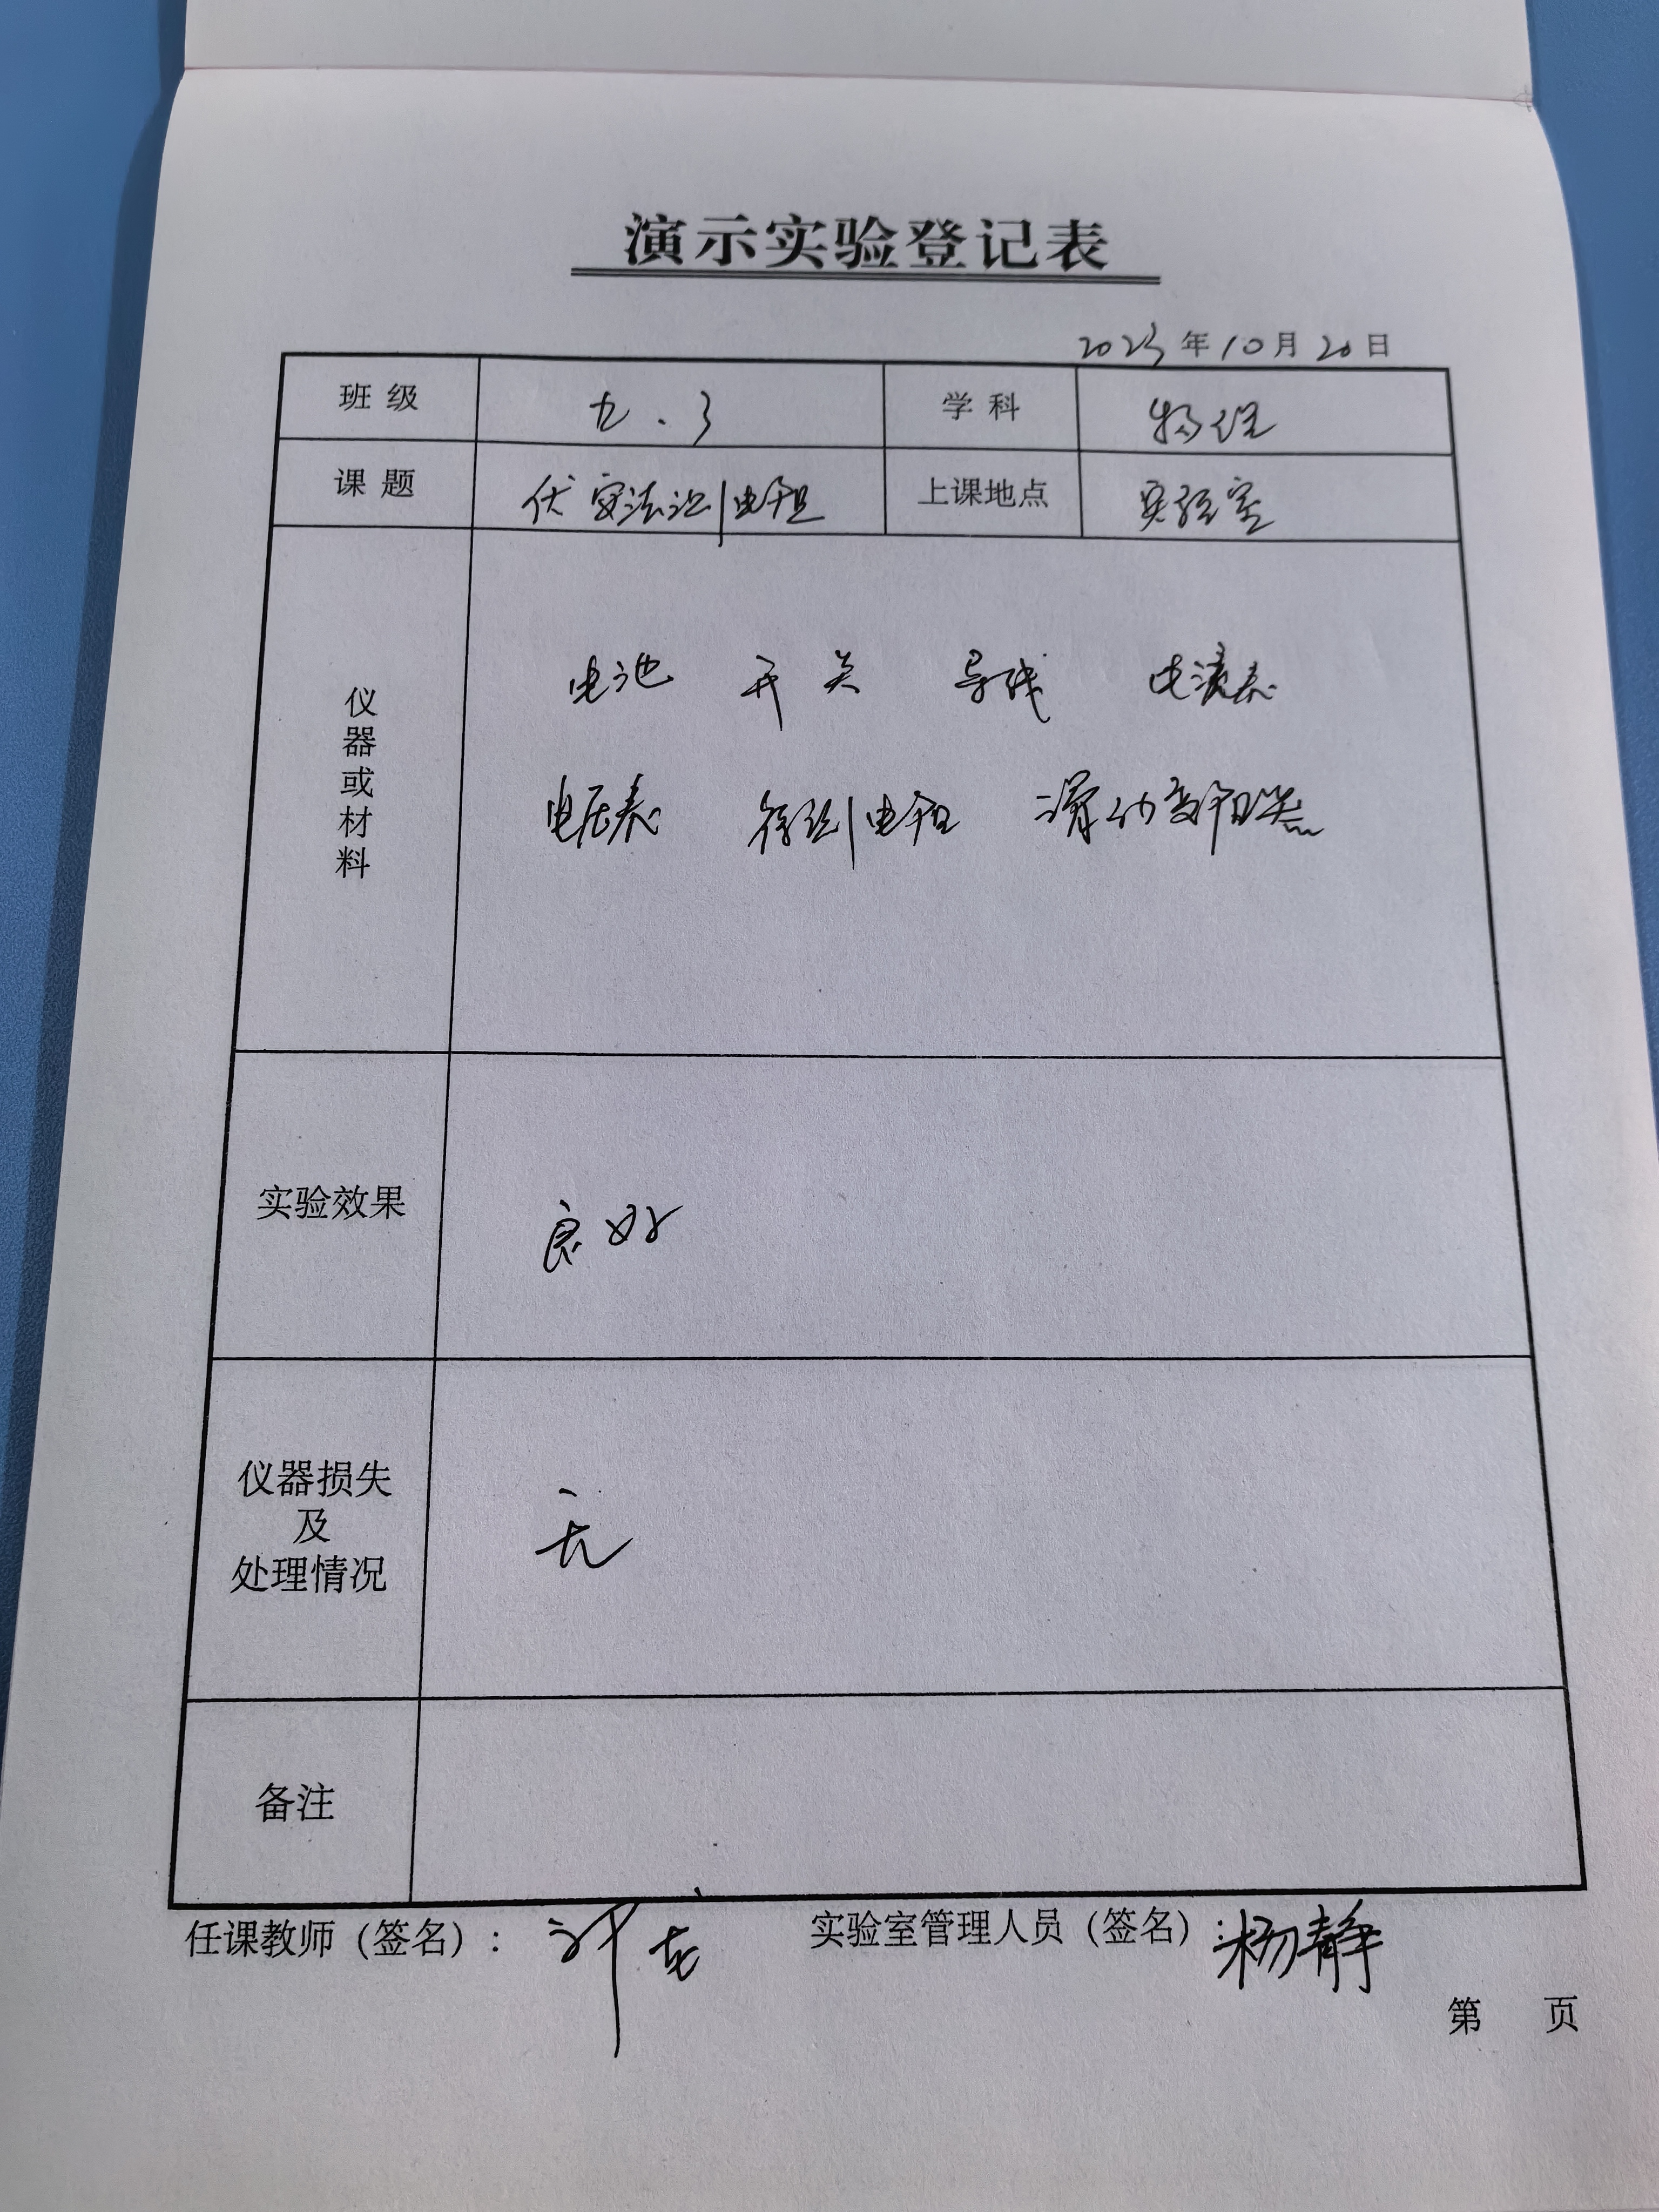 演示实验登记表
2023年10月20日
班级 九.3 学科 物理
课题 伏安法测电阻 上课地点 实验室
仪器或材料
电池 开关 导线 电流表
电压表 待测电阻 滑动变阻器
实验效果 良好
仪器损失
及
处理情况
无
备注
任课教师（签名）： 实验室管理人员（签名）：杨静
第 页